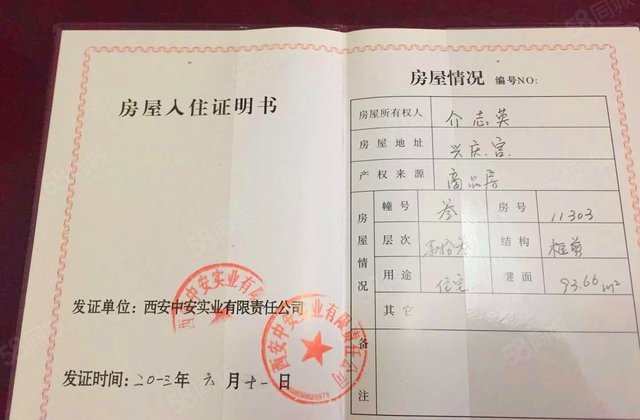 房屋入住证明书
发证单位：西安中安实业有限责任公司
发证时间：二〇一三年 六 月 十一 日
西安中安实业有限责任公司
房屋情况 编号NO:
房屋所有权人 介志英
房屋地址 兴庆宫
产权来源 商品房
房屋情况
幢号 叁 房号 11303
层次 结构 框剪
用途 住宅 建面 93.66m²
其它
备注
58同城